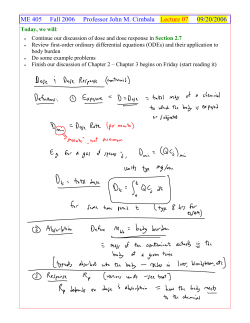 ME 405 Fall 2006 Professor John M. Cimbala Lecture 07 09/20/2006
Today, we will:
• Continue our discussion of dose and dose response in Section 2.7
• Review first-order ordinary differential equations (ODEs) and their application to
body burden
• Do some example problems
• Finish our discussion of Chapter 2 – Chapter 3 begins on Friday (start reading it)
Dose & Dose Response (continued)
Definitions: ① Exposure = D = Dose = total mass of a chemical
to which the body is exposed
or subjected
Dm = Dose Rate (per minute)
"minute", not maximum
E.g. for a gas of species j, Dm = (QC)j
units typ mg/min
Dt = total dose
Dt = ∫ QCj dt
for some time period t (typ 8 hrs for
② Absorption Define mbb = body burden
= mass of the contaminant actually in the
body at a given time
③ Response Rp (various units – see text)
Rp depends on dose & absorption = how the body reacts
to the chemical